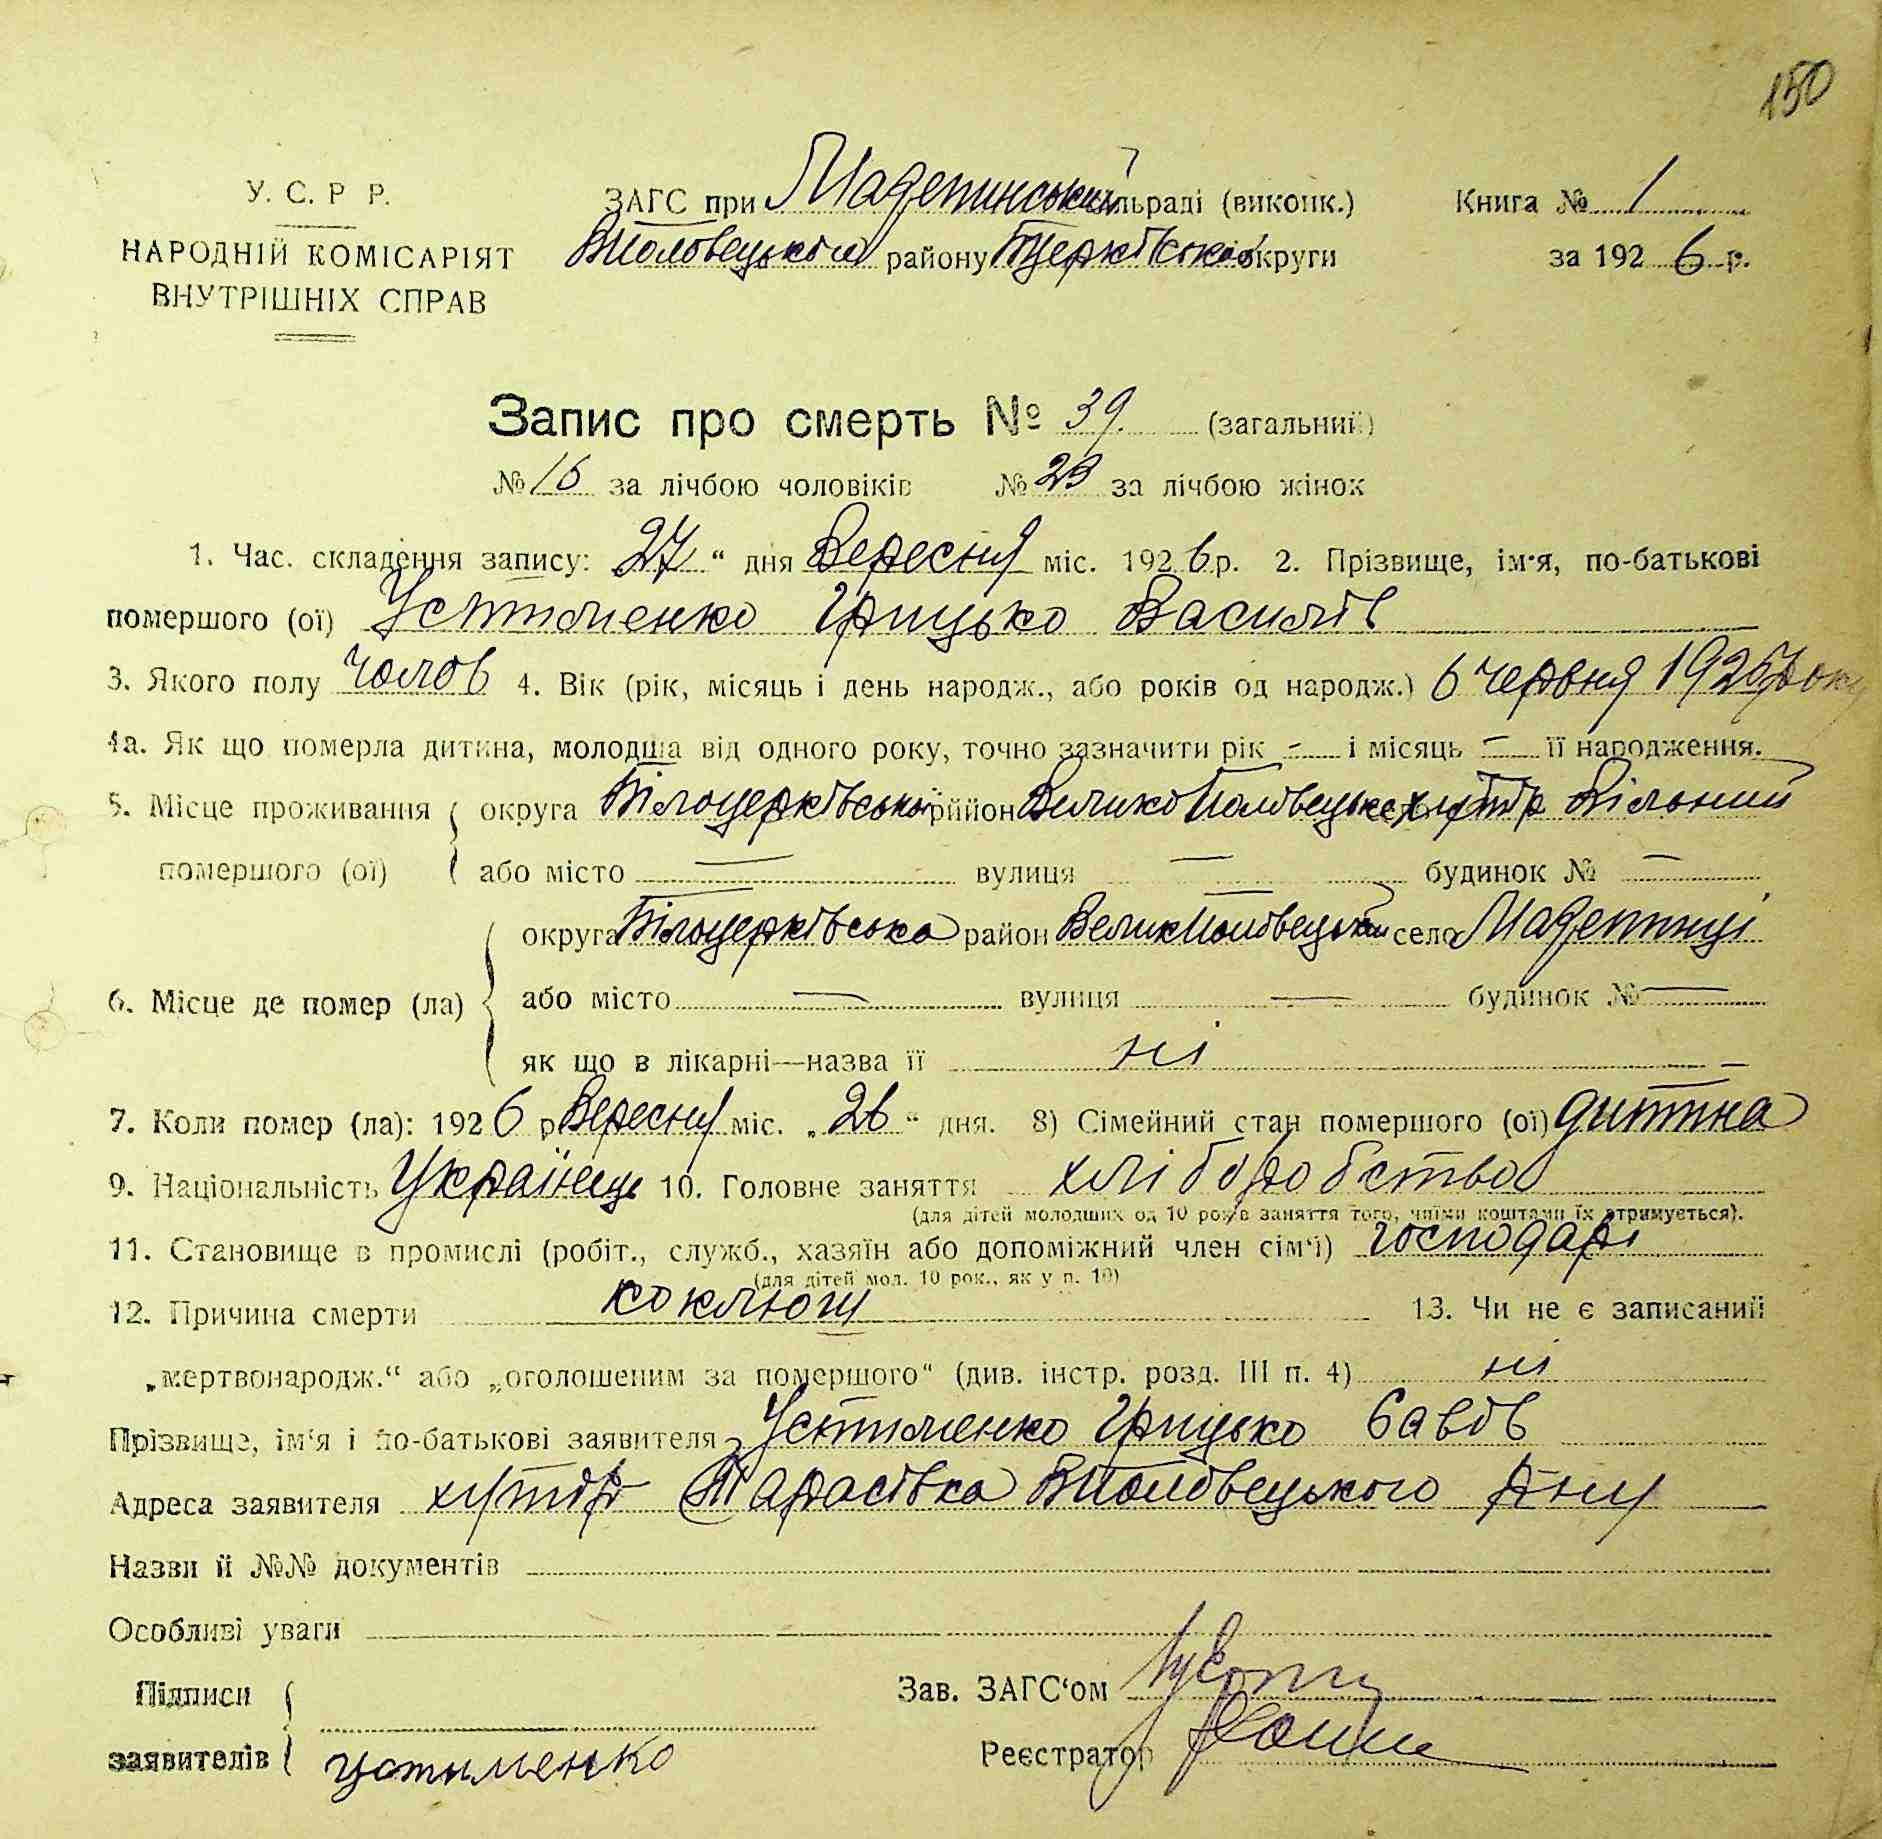 150
У. С. Р Р.
НАРОДНІЙ КОМІСАРІЯТ
ВНУТРІШНІХ СПРАВ
ЗАГС при Мадепинський сільраді (виконк.)
ВПоловецького району БЦерківської округи
Книга № 1
за 1926 р.
Запис про смерть № 39. (загальний)
№ 16 за лічбою чоловіків № 23 за лічбою жінок
1. Час. складення запису: 27 “ дня Вересня міс. 1926 р. 2. Прізвище, ім‘я, по-батькові
помершого (ої) Устименко Грицько Василів
3. Якого полу Чолов 4. Вік (рік, місяць і день народж., або років од народж.) 6 червня 1925 року
4а. Як що померла дитина, молодша від одного року, точно зазначити рік – і місяць – її народження.
5. Місце проживання помершого (ої) округа Білоцерківська район ВеликоПоловецьке хутір Вільний
або місто — вулиця — будинок № —
6. Місце де помер (ла) округа Білоцерківська район ВеликПоловецький село Мадепинці
або місто — вулиця — будинок № —
як що в лікарні—назва її ні
7. Коли помер (ла): 1926 р Вересня міс. „26“ дня. 8) Сімейний стан помершого (ої) дитина
9. Національність Українець 10. Головне заняття хліборобство
(для дітей молодших од 10 років заняття того, чиїми коштами їх утримується).
11. Становище в промислі (робіт., служб., хазяїн або допоміжний член сім‘ї) господарі
(для дітей мол. 10 рок., як у п. 10)
12. Причина смерти коклюш 13. Чи не є записаний
„мертвонародж.“ або „оголошеним за помершого“ (див. інстр. розд. III п. 4) ні
Прізвище, ім‘я і по-батькові заявителя Устименко Грицько Савов
Адреса заявителя хутір Тарасівка ВПоловецького Р-ну
Назви й №№ документів
Особливі уваги
Підписи
заявителів Устименко
Зав. ЗАГС‘ом
Реєстратор